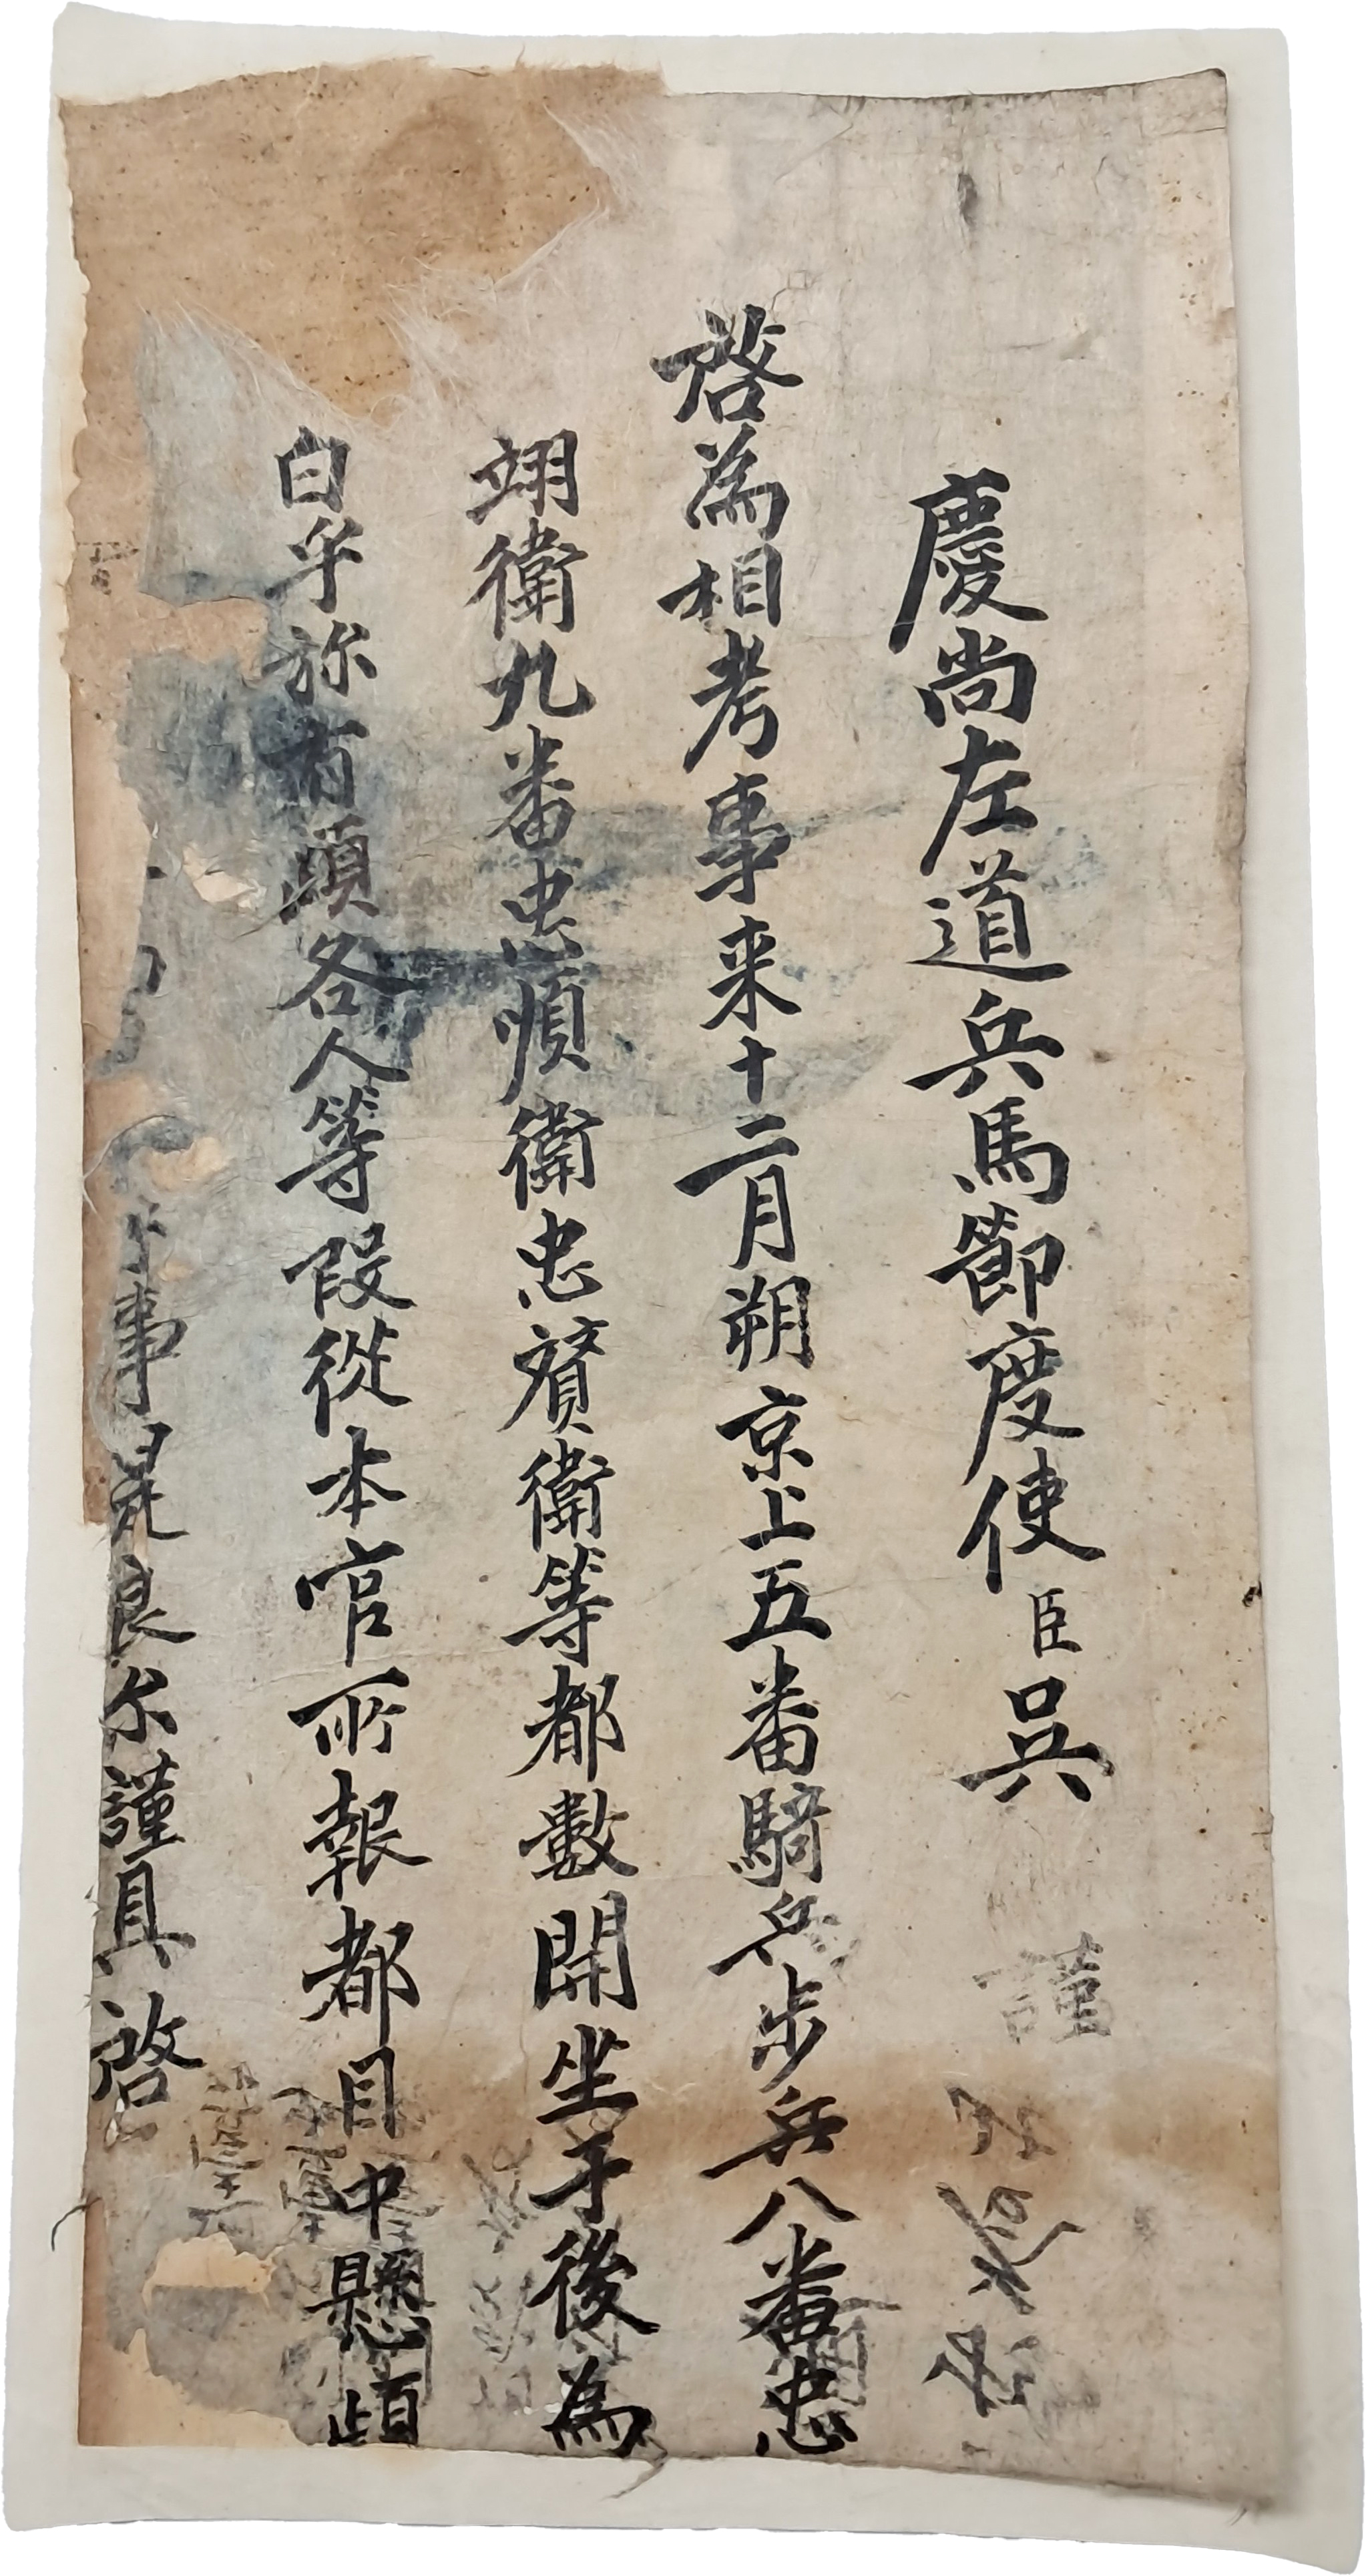 慶尚左道兵馬節度使臣吳 謹
啓為相考事来十二月朔京上五番騎兵步兵八番忠
翊衛九番忠順衛忠贊衛等都數開坐于後為
白乎旀有頉各人等段從本官所報都目中懸頉
事是良尔謹具啓